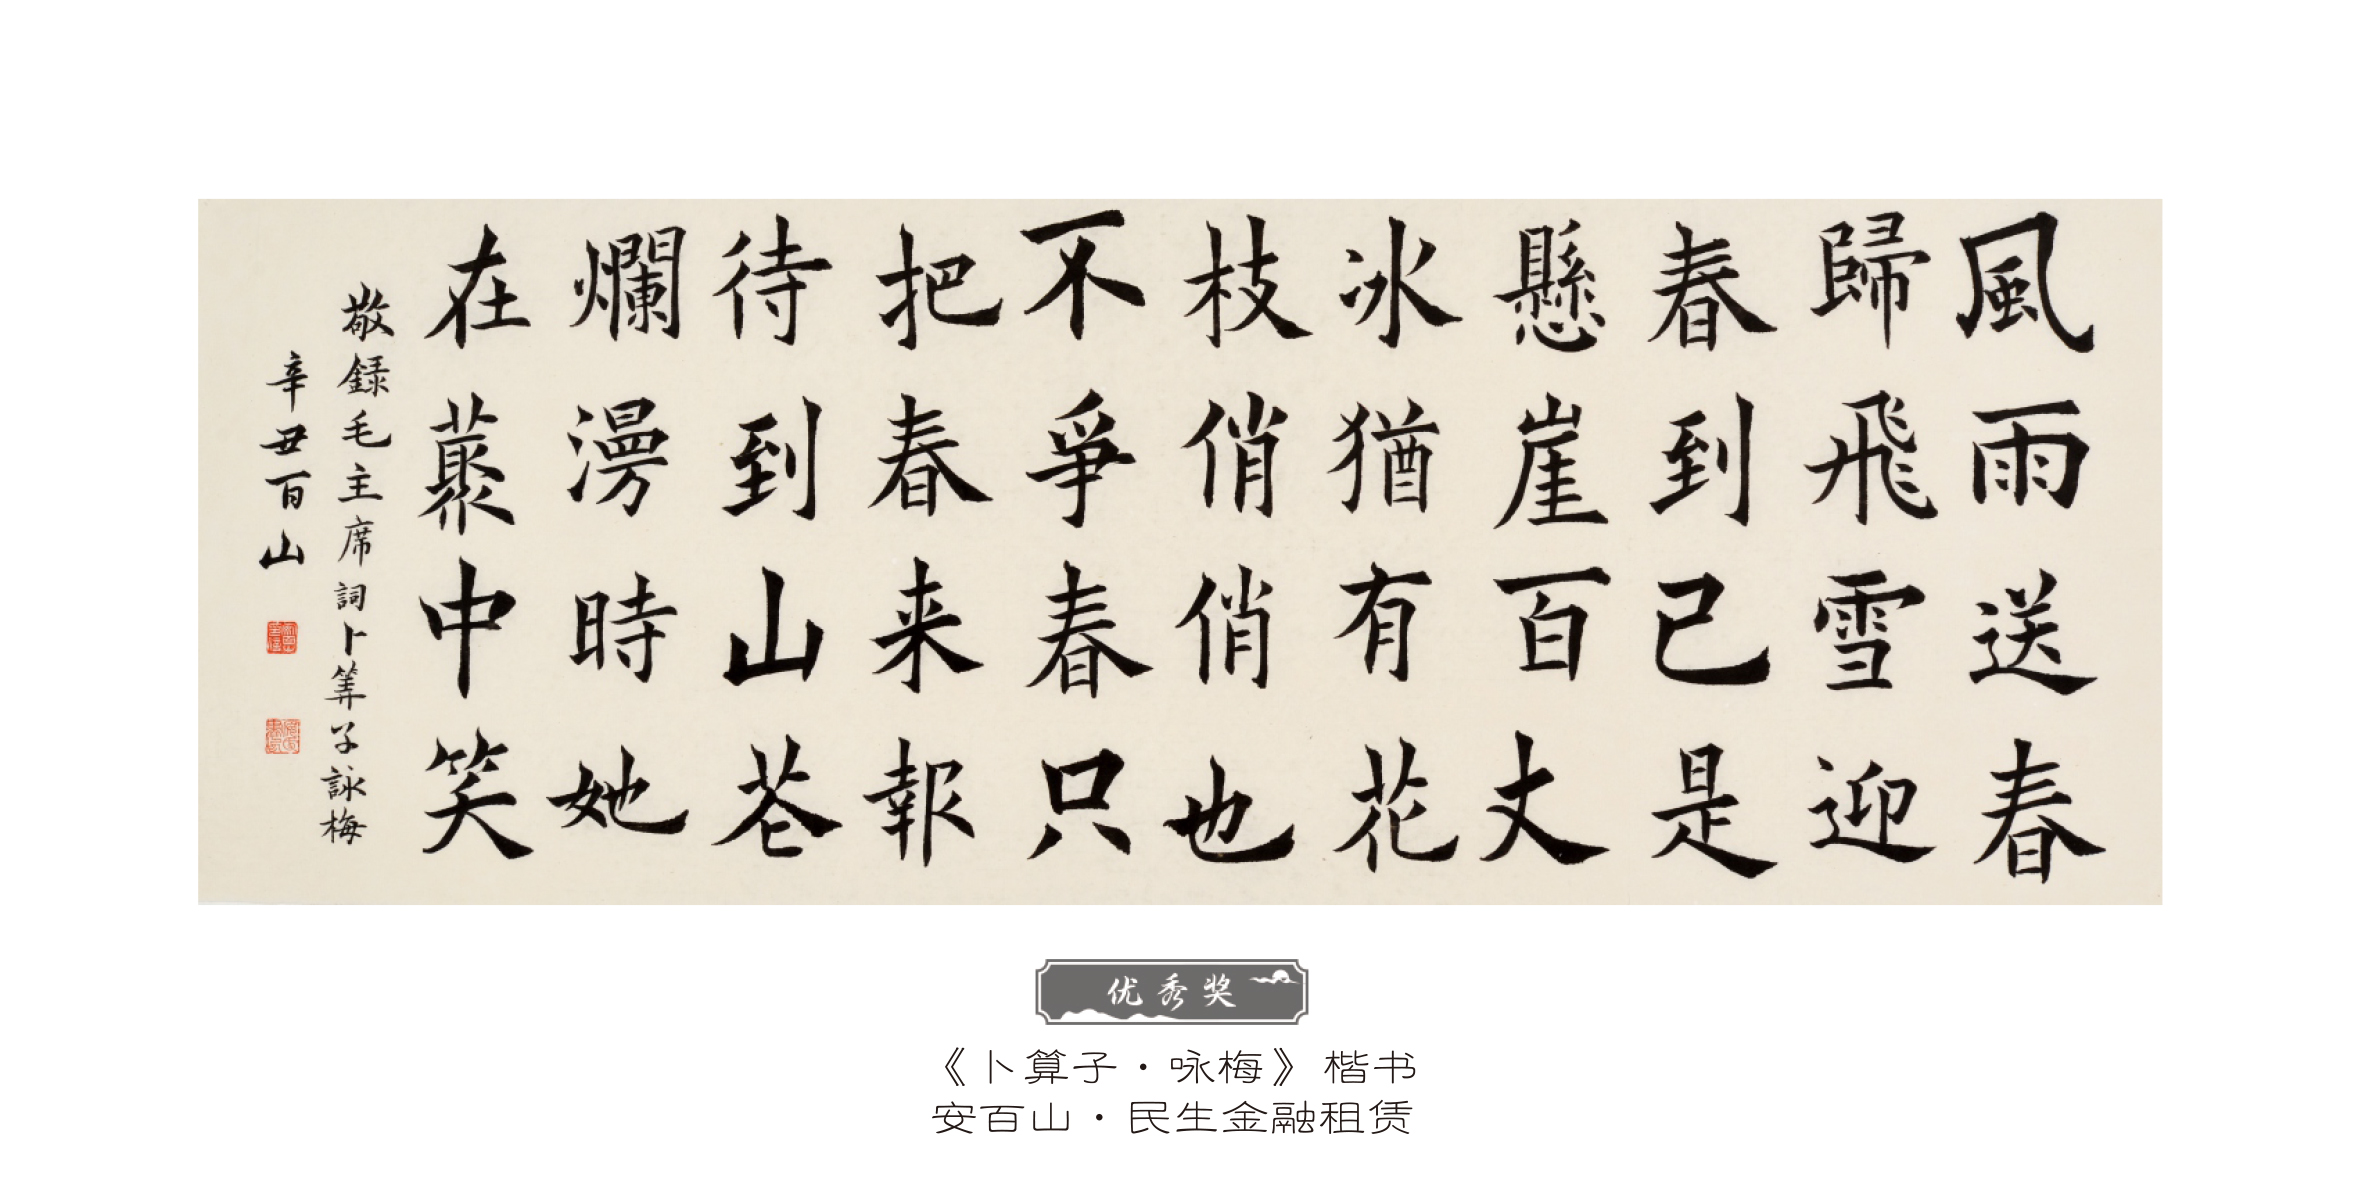 風雨送春
歸飛雪迎
春到已是
懸崖百丈
冰猶有花
枝俏俏也
不爭春只
把春来報
待到山花
爛漫時她
在藂中笑
敬録毛主席詞卜筭子詠梅
辛丑百山
优秀奖
《卜算子·咏梅》楷书
安百山·民生金融租赁